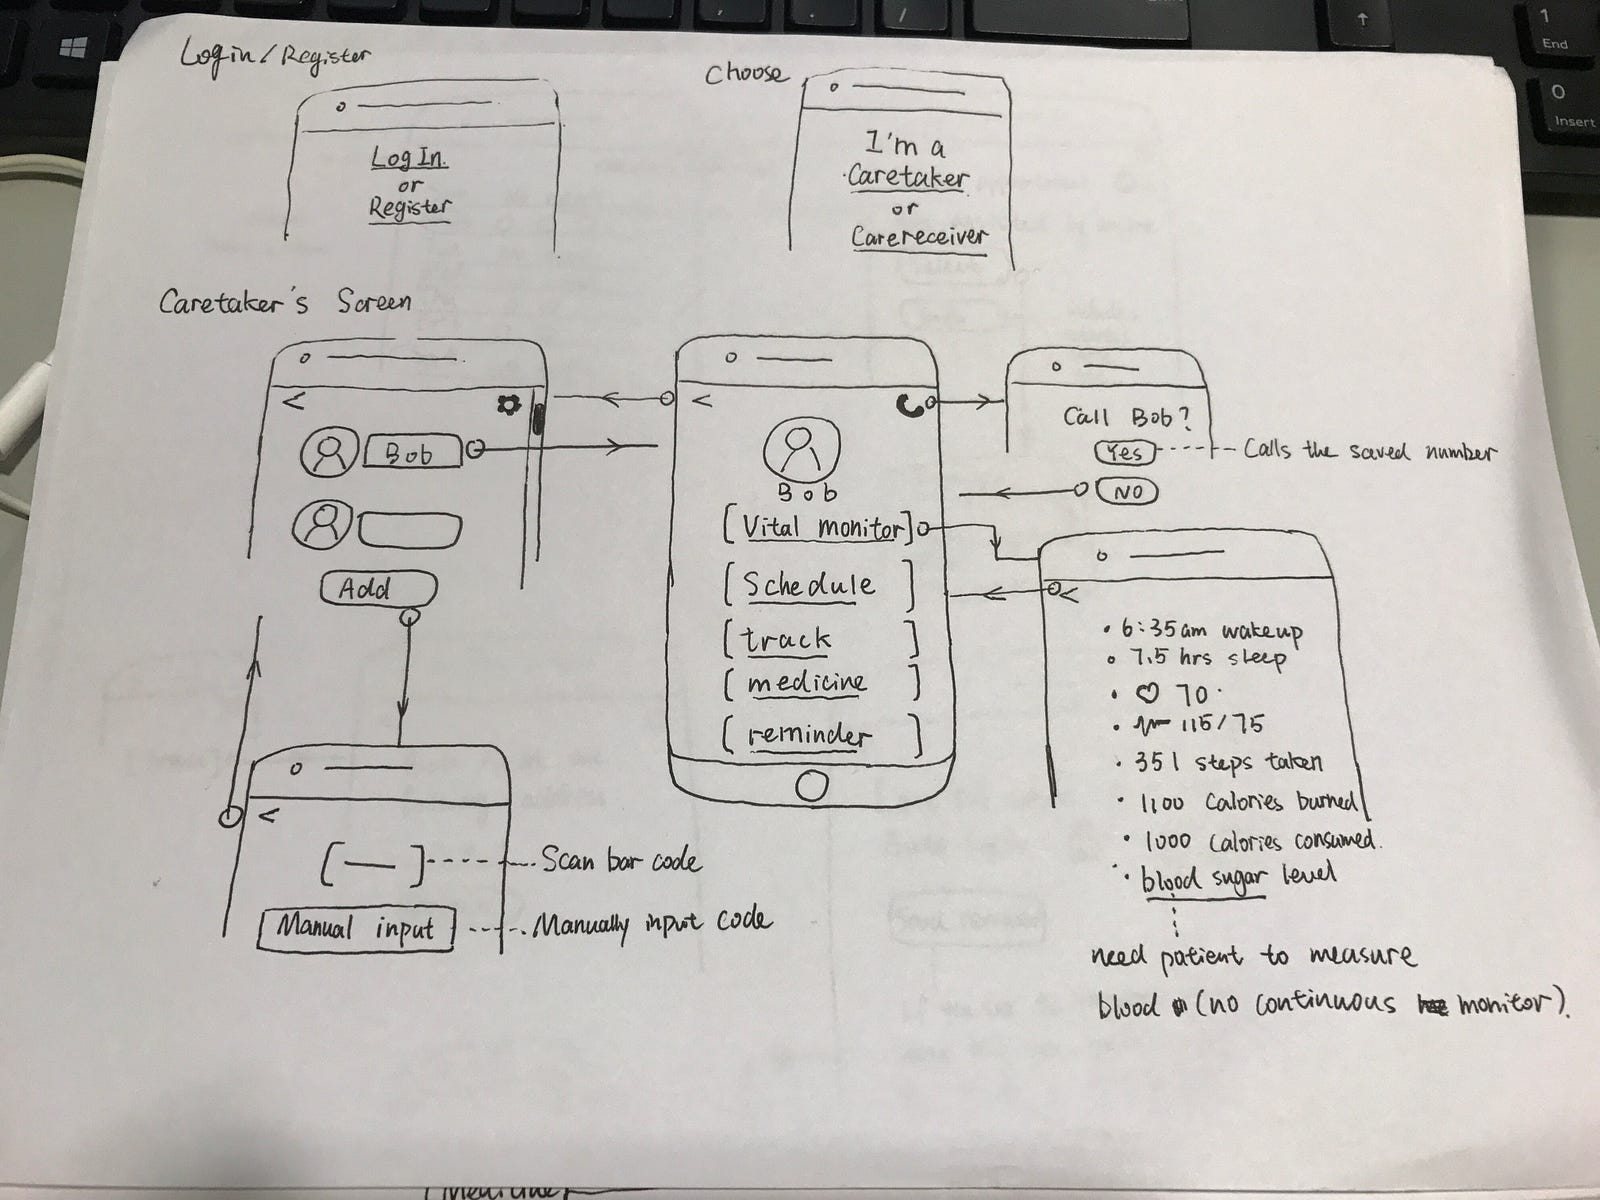 End
Insert
1
0
Login/Register
Choose
Log In
or
Register
I'm a
Caretaker
or
Carereceiver
Caretaker's Screen
<
Bob
Add
<
Scan bar code
Manual input
Manually input code
<
Bob
[Vital monitor]
[Schedule]
[track]
[medicine]
[reminder]
Call Bob?
Yes
Calls the saved number
NO
<
• 6:35am wakeup
• 7.5 hrs sleep
• ♡ 70
• 115/75
• 351 steps taken
• 1100 Calories burned
• 1000 Calories consumed.
• blood sugar level
need patient to measure
blood (no continuous monitor).